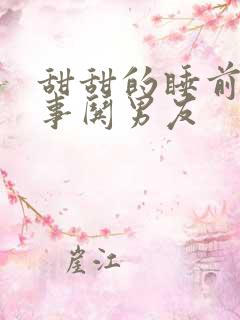 甜甜的睡前
事鬨男友
崖江